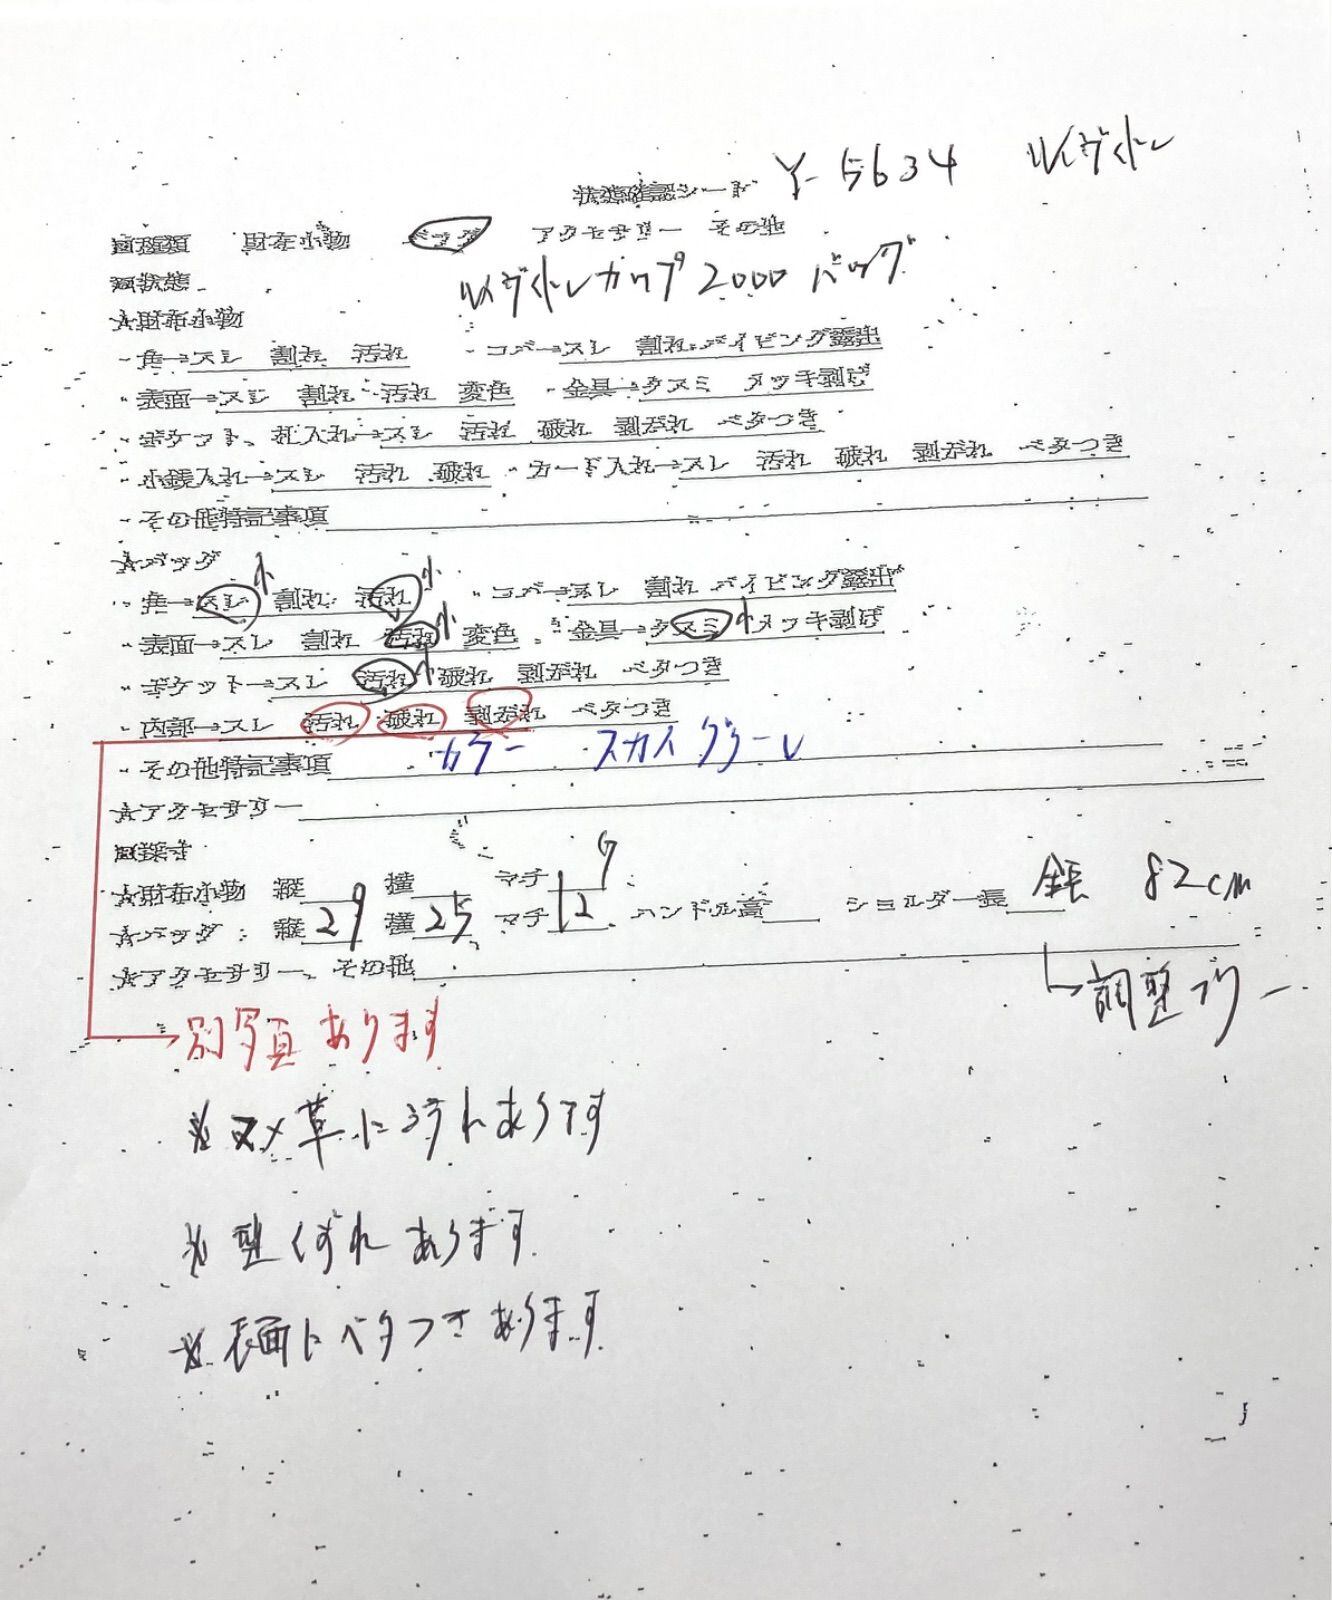 状態確認シート Y-5634 ルイヴィトン
□種類 財布小物 バッグ アクセサリー その他
□状態
ルイヴィトンカップ2000バッグ
☆財布小物
・角→スレ 割れ 汚れ ・コバ→スレ 割れ パイピング露出
・表面→スレ 割れ 汚れ 変色 ・金具→クスミ メッキ剥げ
・ポケット、札入れ→スレ 汚れ 破れ 剥がれ ベタつき
・小銭入れ→スレ 汚れ 破れ ・カード入れ→スレ 汚れ 破れ 剥がれ ベタつき
・その他特記事項
☆バッグ
・角→スレ小 割れ 汚れ小 ・コバ→スレ 割れ パイピング露出
・表面→スレ 割れ 汚れ小 変色 ・金具→クスミ小 メッキ剥げ
・ポケット→スレ 汚れ小 破れ 剥がれ ベタつき
・内部→スレ 汚れ 破れ 剥がれ ベタつき
・その他特記事項 カラー
☆アクセサリー
□採寸
☆財布小物 縦 横 マチ
☆バッグ：縦29 横25 マチ12 ハンドル高 ショルダー長 全長 82cm
☆アクセサリー、その他
→調整フリー
→別写真あります
※ヌメ革に汚れあります
※型くずれあります
※表面にベタつきあります